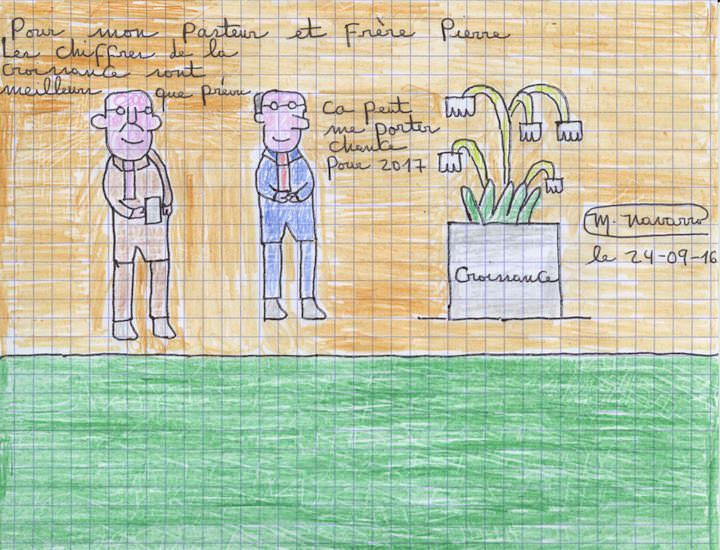 Pour mon Pasteur et Frère Pierre
Les chiffres de la
Croissance sont
meilleurs que prévu
Ca peut
me porter
chance
pour 2017
Croissance
M. Navarro
le 24-09-16